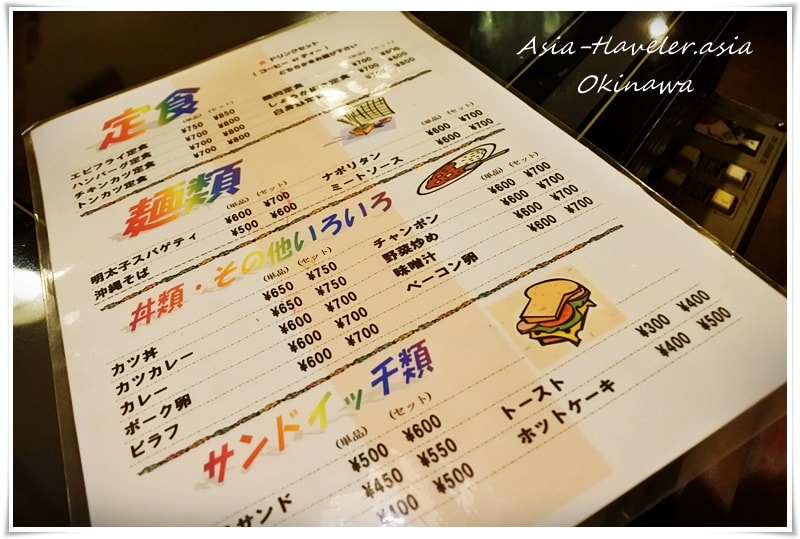 Asia-Traveler.asia
Okinawa
ドリンクセット
(コーヒー or ティー)
どちらかをお選び下さい
定食
(単品) (セット)
エビフライ定食 ¥750 ¥850
ハンバーグ定食 ¥700 ¥800
チキンカツ定食 ¥700 ¥800
トンカツ定食 ¥700 ¥800
焼肉定食 ¥700 ¥800
しょうが焼き定食 ¥700 ¥800
¥700 ¥800
麺類
(単品) (セット)
明太子スパゲティ ¥600 ¥700
沖縄そば ¥500 ¥600
ナポリタン ¥600 ¥700
ミートソース ¥600 ¥700
丼類・その他いろいろ
(単品) (セット)
カツ丼 ¥650 ¥750
カツカレー ¥650 ¥750
カレー ¥600 ¥700
ポーク卵 ¥600 ¥700
ピラフ ¥600 ¥700
チャンポン ¥600 ¥700
野菜炒め ¥600 ¥700
味噌汁 ¥600 ¥700
ベーコン卵 ¥600 ¥700
サンドイッチ類
(単品) (セット)
サンド ¥500 ¥600
¥450 ¥550
¥400 ¥500
トースト ¥300 ¥400
ホットケーキ ¥400 ¥500